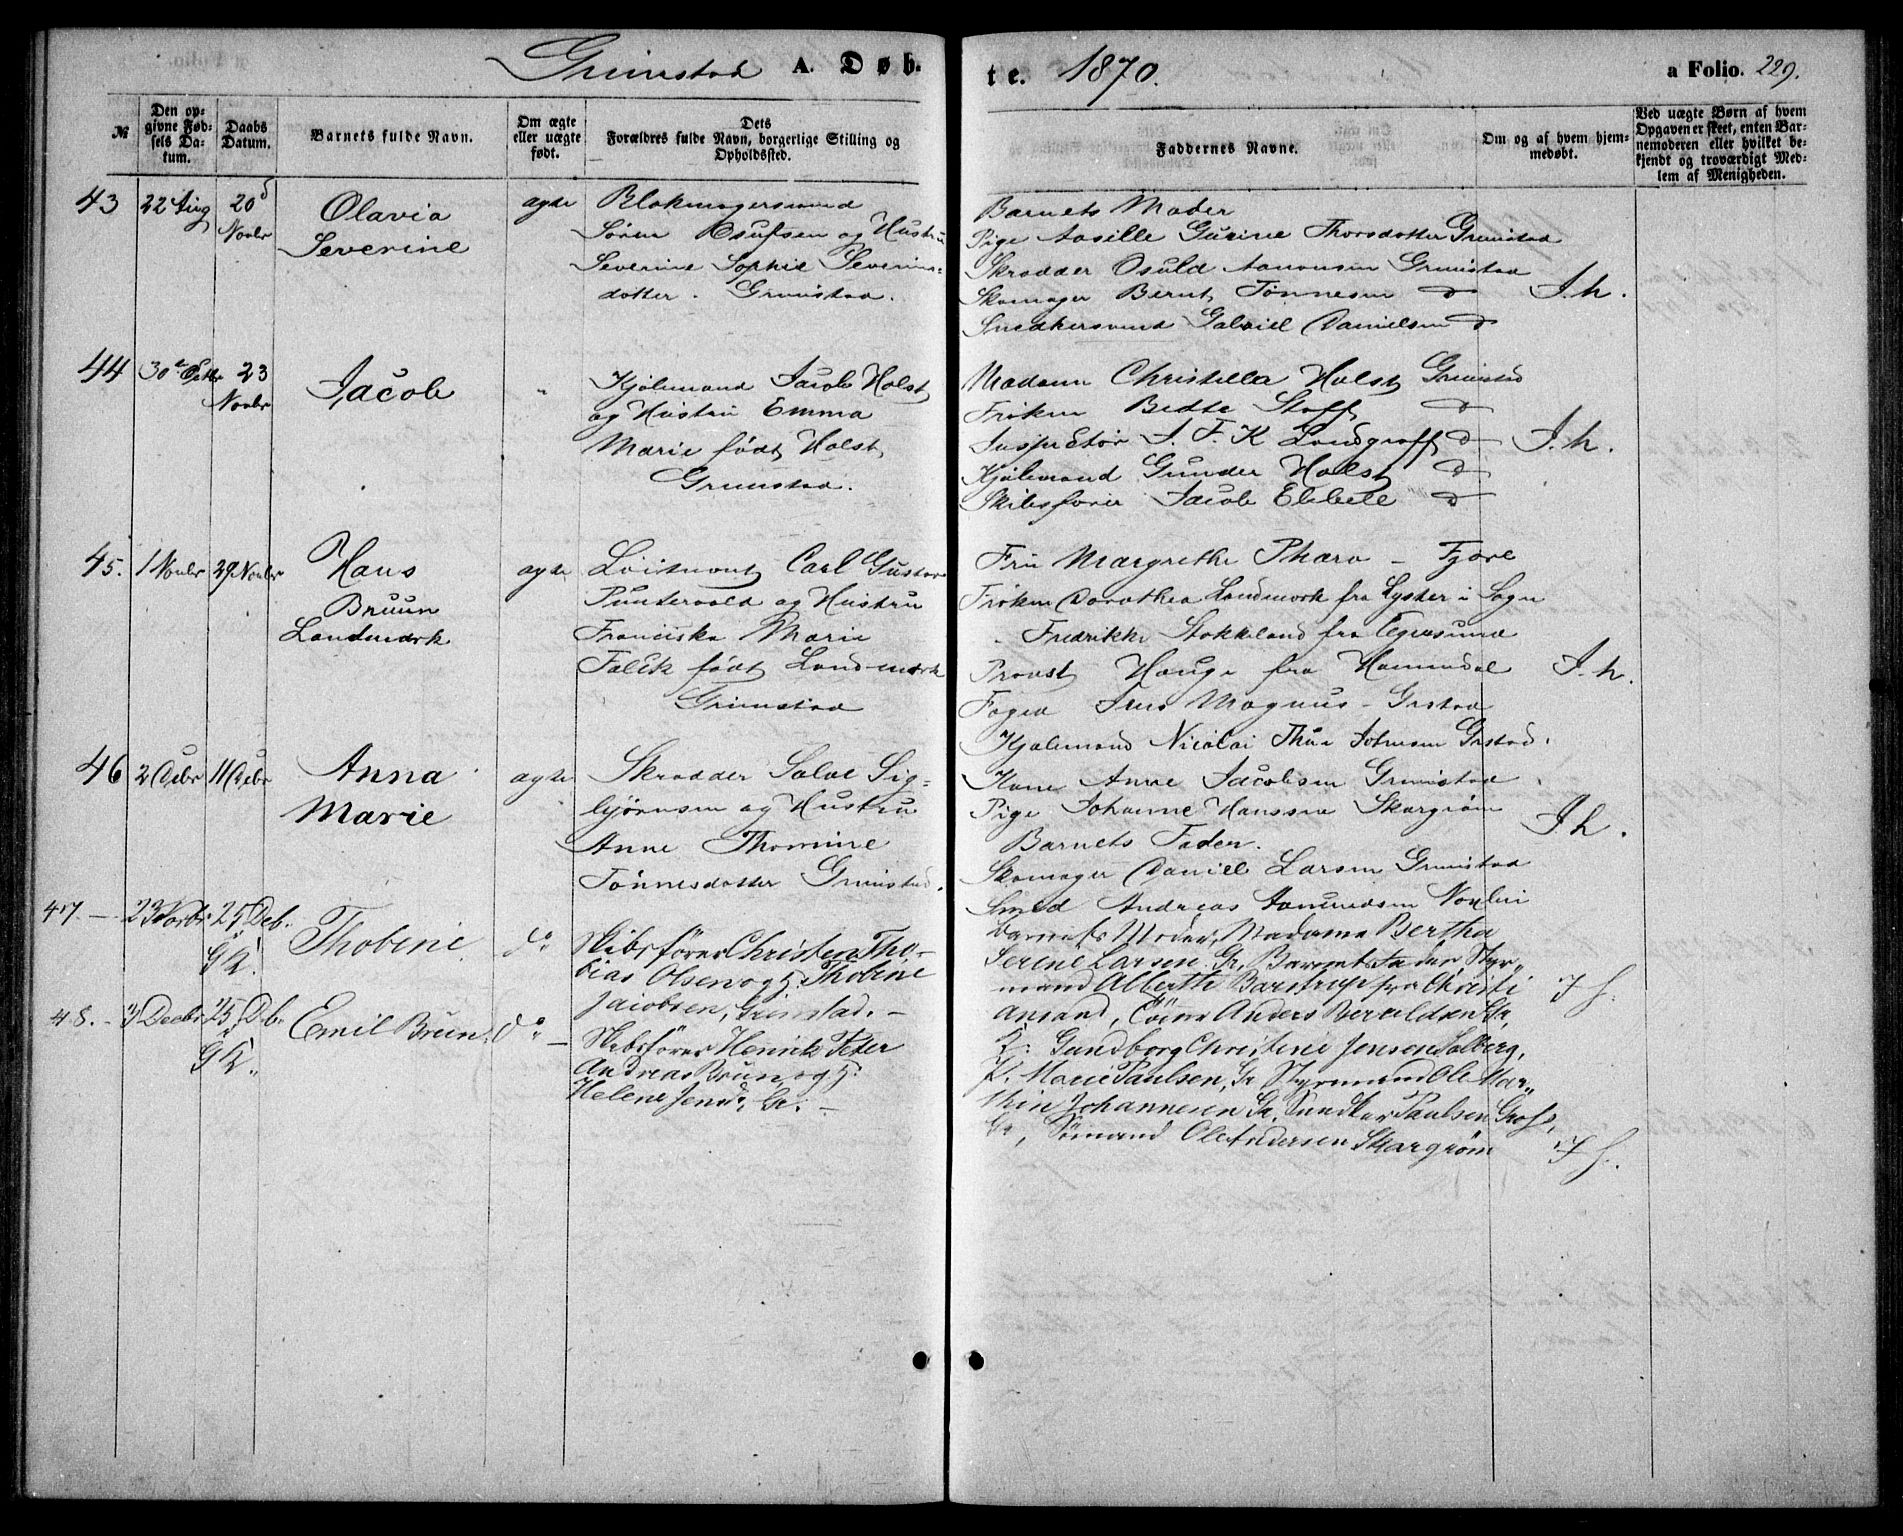 Grimstad A. Døb-
te. 1870. a Folio. 229.
№
Den op-
givne Fød-
sels Da-
tum.
Daabs
Datum.
Barnets fulde Navn.
Om ægte
eller uægte
født.
Dets
Forældres fulde Navn, borgerlige Stilling og
Opholdssted.
Faddernes Navne.
Om og af hvem hjem-
medøbt.
Ved uægte Børn af hvem
Opgaven er skeet, enten Bar-
nemoderen eller hvilket be-
kjendt og troværdigt Med-
lem af Menigheden.
43 22 Aug 20d
Novbr
Olavia
Severine
agte
Blokmagersvend
Søren Osufsen og Hustru
Severine Sophie Severins-
dotter. Grimstad.
Barnets Moder
Pige Aasille Gurine Thorsdotter Grimstad
Skrædder Osuld Aanonsen Grimstad
Skomager Bernt Tønnesen do
Snedkersvend Gabriel Danielsen do
I.h.
44 30 Septbr 23
Novbr
Jacob
"
Kjøbmand Jacob Holst
og Hustru Emma
Marie født Holst
Grimstad.
Madam Christella Holst Grimstad
Frøken Bedte Stoff do
Inspektør J. F. K Landgraff do
Kjøbmand Gunder Holst do
Skibsfører Jacob Ebbell do
I.h.
45. 1 Novbr 29 Novbr
Hans
Bruun
Landmark
agte
Loitnant Carl Gustav
Puntervold og Hustru
Franciska Marie
Falck født Landmark
Grimstad
Fru Margrethe Pharo - Fjære
Frøken Dorothea Landmark fra Lyster i Sogn
" Fredrikke Stokkeland fra Egersund
Provst Hauge fra Hommedal
Foged Jens Magnus - Grstad
Kjøbmand Nicolai Thue Johnsen Grstad.
I.h.
46 2 Octbr 11 Decbr
Anna
Marie
agte
Skrædder Salve Sig-
bjørnsen og Hustru
Anne Thomine
Tønnesdotter Grimstad.
Kone Anne Jacobsen Grimstad
Pige Johanne Hanssen Skargrøm
Barnets Fader.
Skomager Daniel Larsen Grimstad
Smed Andreas Aamundsen
I h.
47. - 23 Novbr 25 Deb.
G K.
Thobine
do
Skibsfører Christen Tho-
bias Olsen og H. Thobine
Jacobsen, Grimstad. -
Barnets Moder, Madame Bertha
Serine Larsen. Gr, Barnets Fader, Styr-
mand Alberth Barstrup fra Christi
ansand, Anders Beruldsen Gr,
I h.
48. - Decbr 25 Deb.
G K.
Emil Brun.
do -
Skibsfører Henrik Peter
Andreas Brun, og H.
Helene Jens, Gr. -
K: Gundborg Christine Jensen Solberg,
P. Marie Paulsen, Gr Styrmand Ole Mar-
thin Johannesen Gr, Snedker Paulsen
Gr, Sømand Ole Andersen Skargrøm
I h.